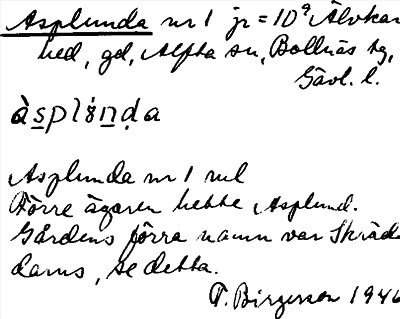 Asplunda nr 1 jr = 10⁹ Älvkar
hed, gd, Alfta sn, Bollnäs tg,
Gävl. l.
àsplṇda
Asplunda nr 1 rul
Förre ägaren hette Asplund.
Gårdens förra namn var Skräd
dams, se detta.
T. Birgerson 1946